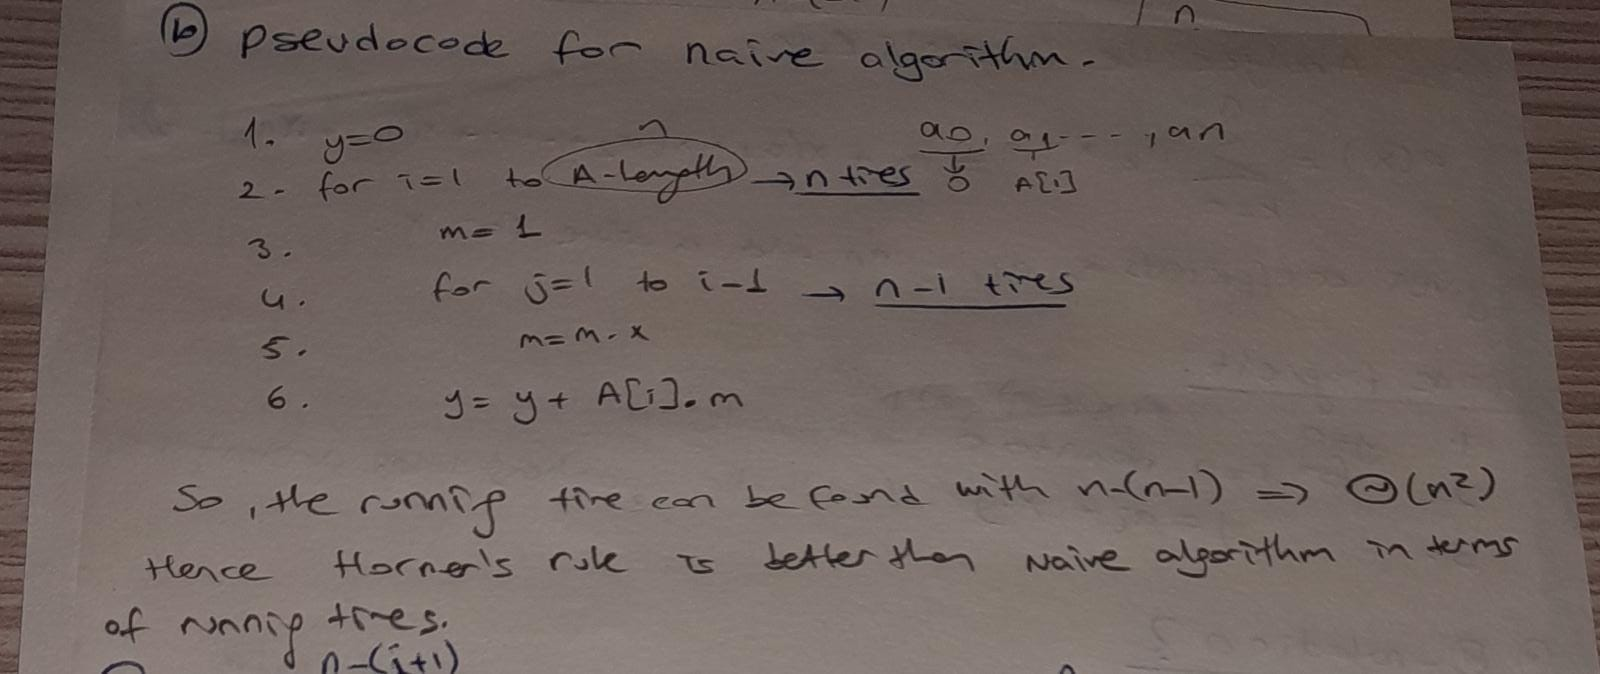 n
b pseudocode for naive algorithm.
1. y=0
n
a0, a1 - - - , an
2. for i=1 to A-length → n times 0 A[1]
3. m= 1
4. for j=1 to i-1 → n-1 times
5. m=m.x
6. y= y+ A[i].m
So, the running time can be found with n.(n-1) => Θ(n²)
Hence Horner's rule is better than Naive algorithm in terms
of running times.
n-(i+1)